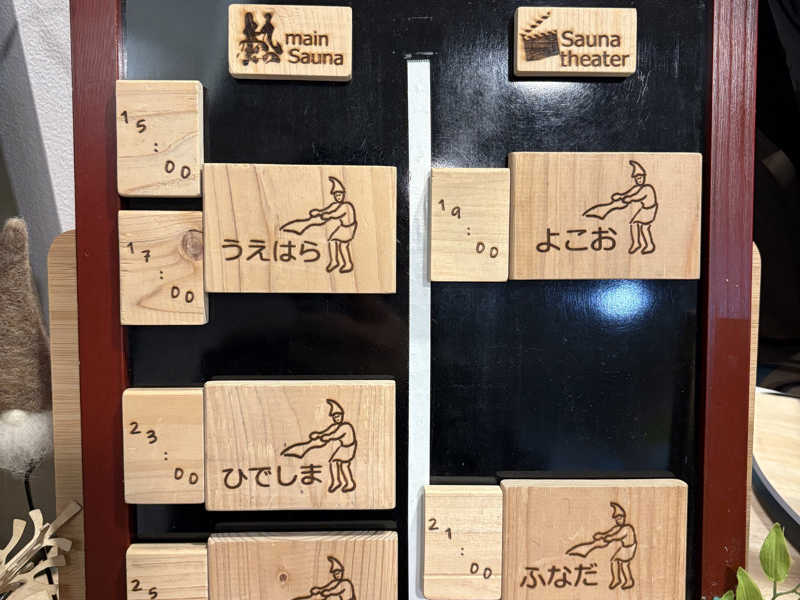 main
Sauna
15:00
うえはら
17:00
23:00
ひでしま
25
Sauna
theater
19:00
よこお
21:00
ふなだ